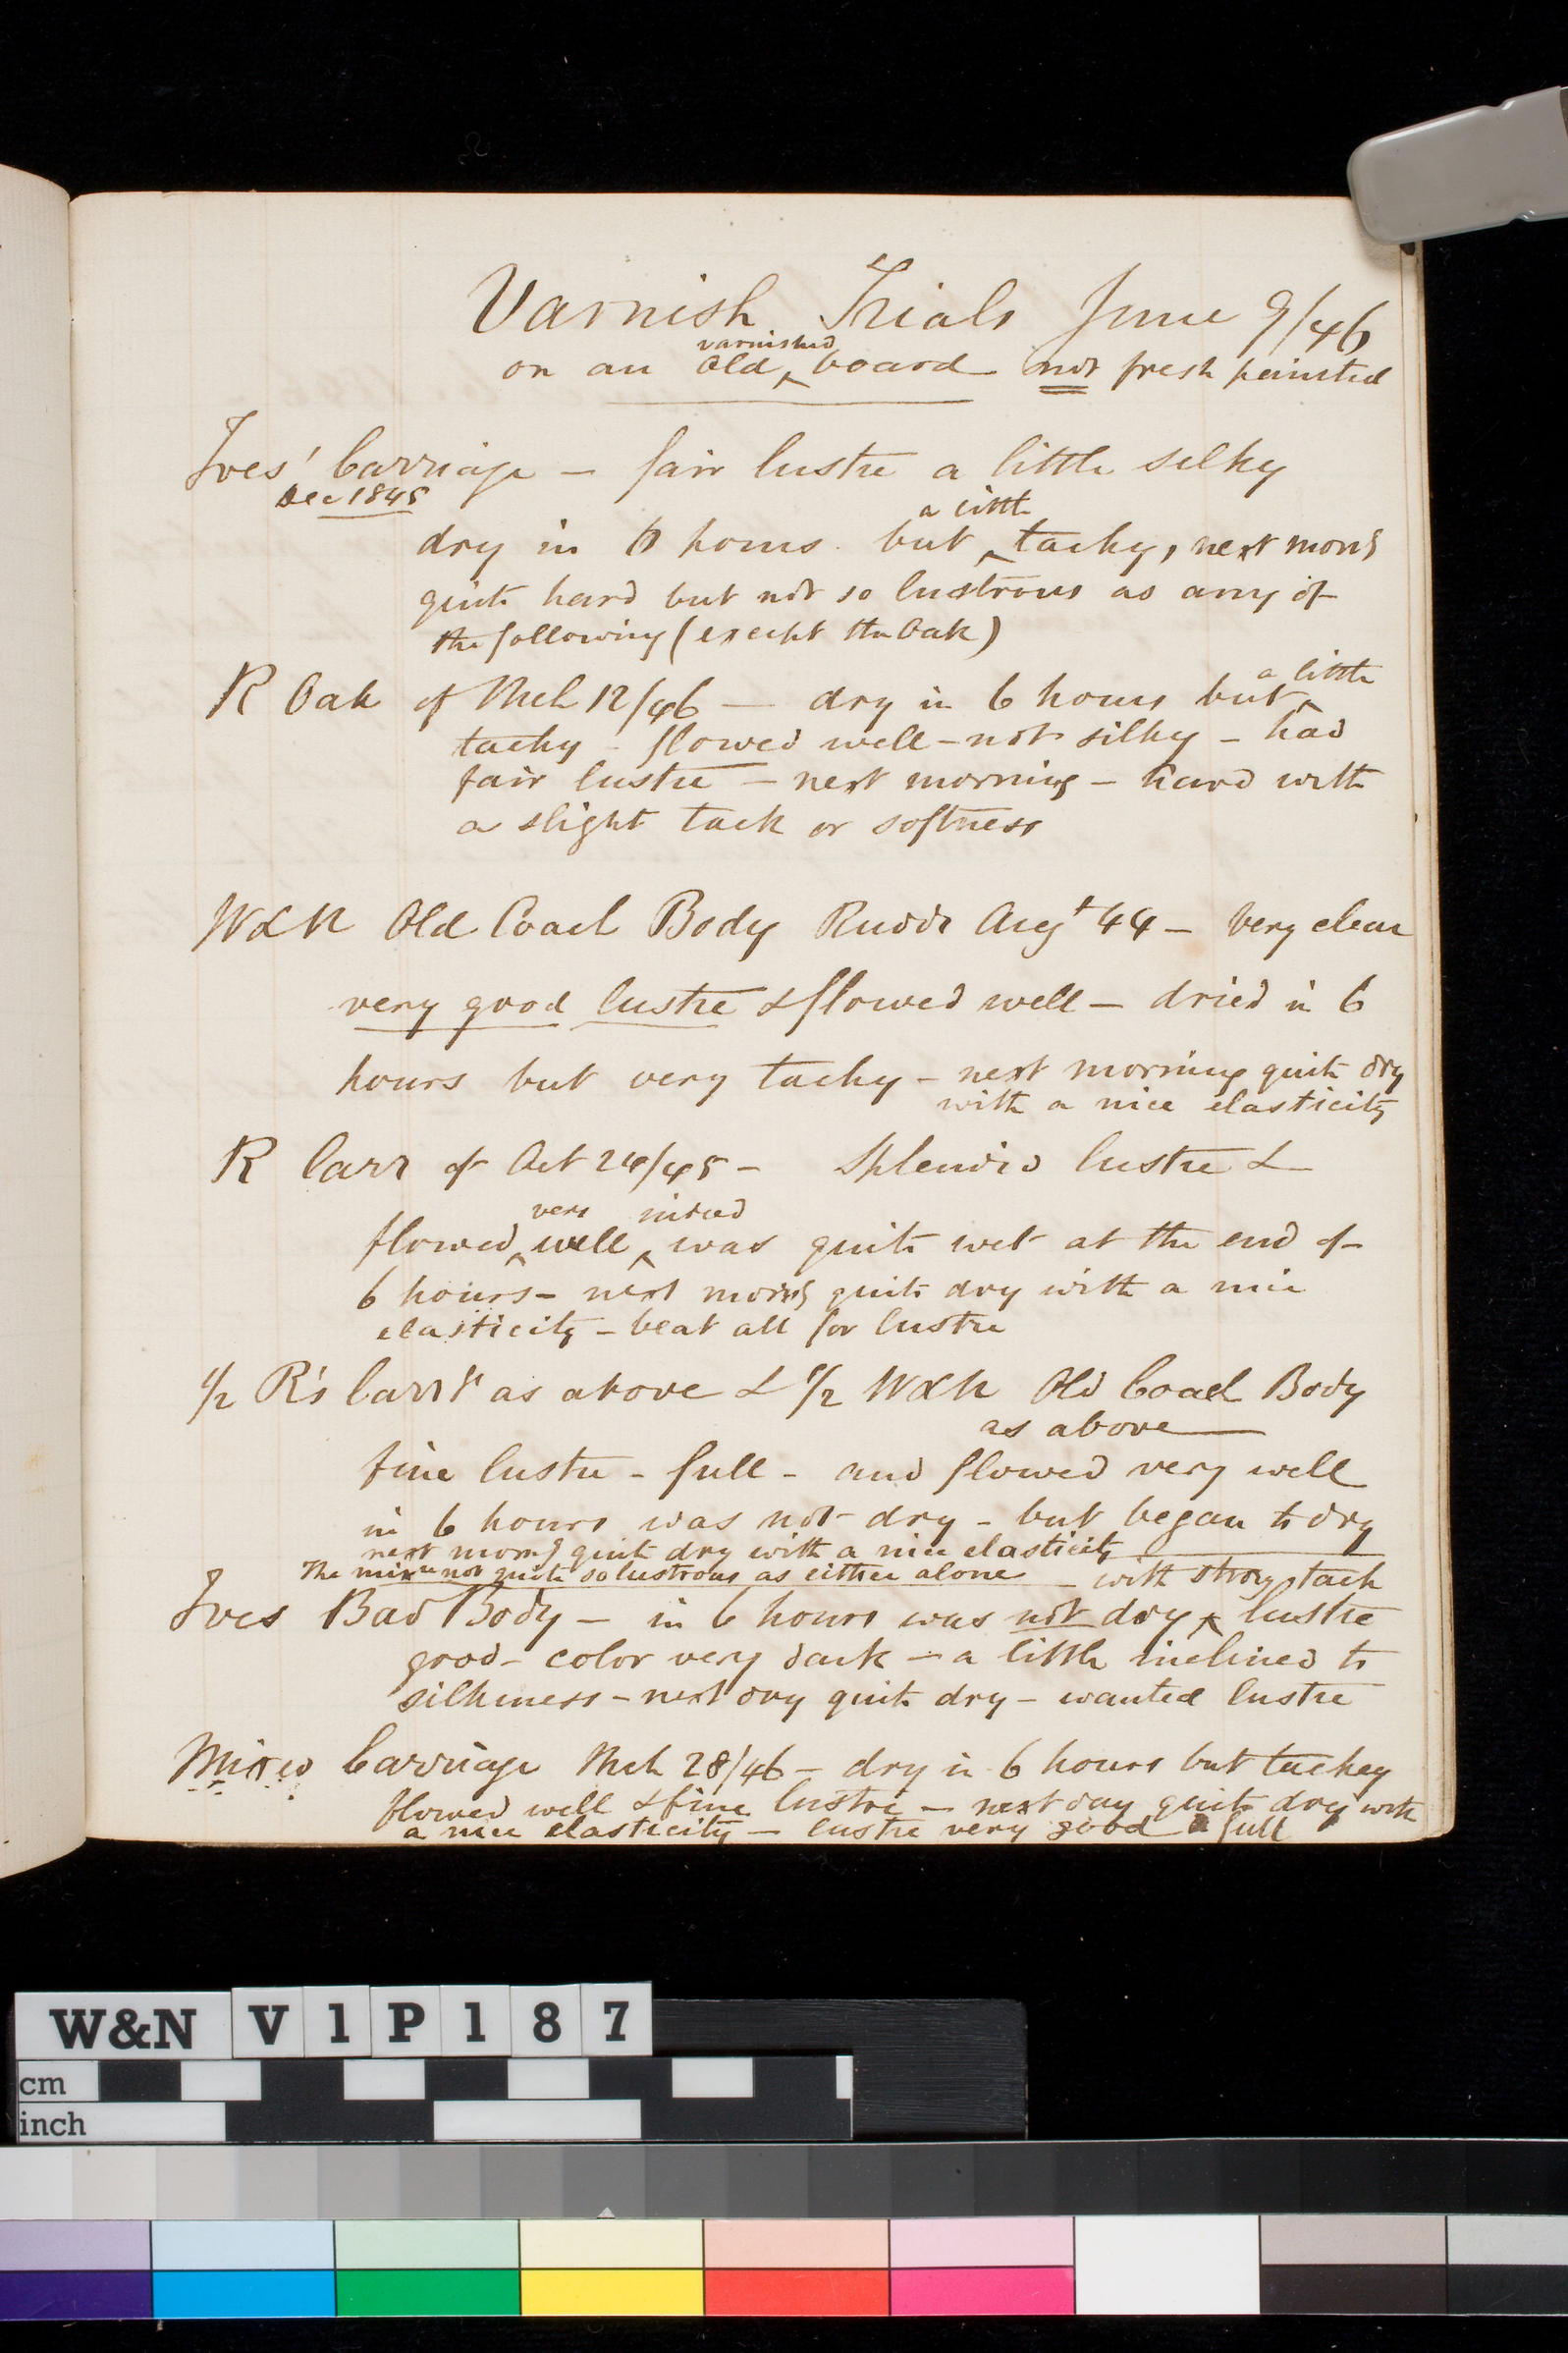 Varnish Trials June 9/46
on an old varnished board not fresh painted
Ives' Carriage – fair lustre a little silky
Dec 1845
dry in 6 hours. but a little tacky, next morng
quite hard but not so lustrous as any of
the following (except the Oak)
R Oak of Mch 12/46 — dry in 6 hours but a little
tacky – flowed well – not silky – had
fair lustre – next morning – hard with
a slight tack or softness
W&N Old Coach Body Rudds Augt 44 – very clear
very good lustre & flowed well – dried in 6
hours but very tacky – next morning quite dry
with a nice elasticity
R Carr of Oct 24/45 – Splendid lustre &
flowed very well indeed was quite wet at the end of
6 hours – next morng quite dry with a nice
elasticity – beat all for lustre
1/2 R's Carr as above & 1/2 W&N Old Coach Body
as above
fine lustre – full – and flowed very well
in 6 hours was not dry – but began to dry
next morng quite dry with a nice elasticity
The mixre not quite so lustrous as either alone
Ives Bad Body – in 6 hours was not dry – with strong tack lustre
good – color very dark – a little inclined to
silkiness – next day quite dry – wanted lustre
Mixed Carriage Mch 28/46 – dry in 6 hours but tackey
flowed well & fine lustre – next day quite dry with
a nice elasticity – lustre very good & full
W&N V1P187
cm
inch